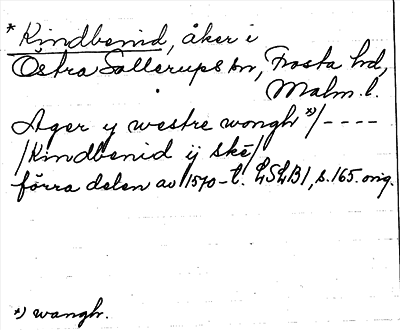 * Kindbenid, åker i
Östra Sallerups sn, Frosta hd,
Malm. l.
Ager y westre wongh *)/ - - - -
/Kindbenid ij skē/
förra delen av 1570-t. LSLB1, s. 165. orig.
*) wangh.